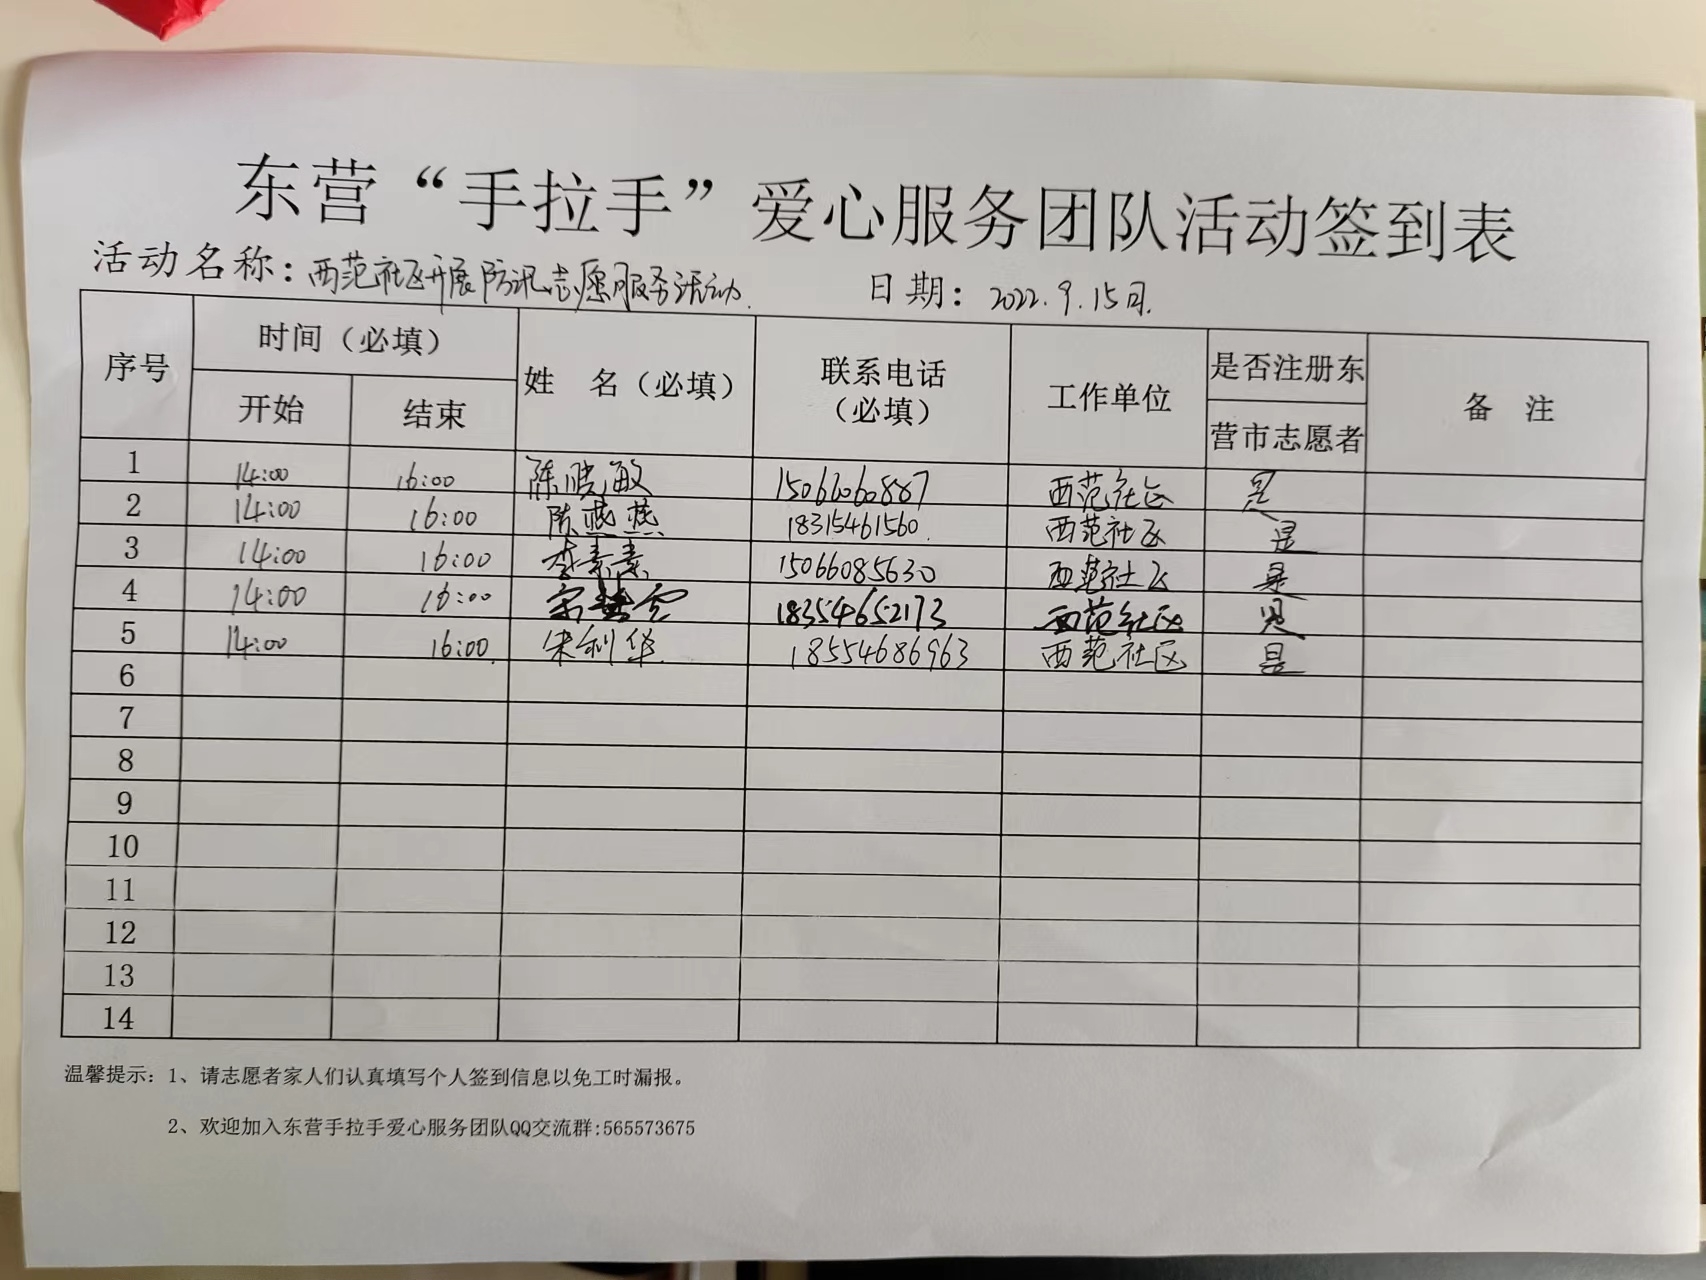 东营“手拉手”爱心服务团队活动签到表
活动名称：西范社区开展防汛志愿服务活动. 日期：2022.9.15日.
序号 时间（必填） 姓 名（必填） 联系电话（必填） 工作单位 是否注册东营市志愿者 备 注
开始 结束
1 14:00 16:00 陈晓敏 15066060887 西范社区 是
2 14:00 16:00 陈燕燕 18315461560. 西范社区 是
3 14:00 16:00 李素素 15066085630 西范社区 是
4 14:00 16:00 18354652173 西范社区 是
5 14:00 16:00. 宋利华. 18554686963 西范社区 是
6
7
8
9
10
11
12
13
14
温馨提示：1、请志愿者家人们认真填写个人签到信息以免工时漏报。
2、欢迎加入东营手拉手爱心服务团队QQ交流群:565573675